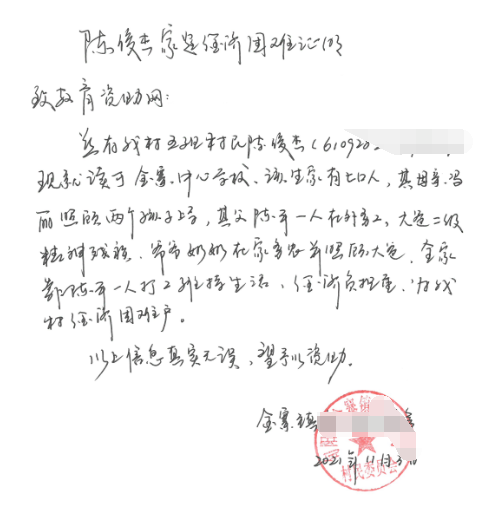 陈俊杰家庭经济困难证明
致教育资助网:
兹有我村五组村民陈俊杰(610920
现就读于金寨中心学校、该生家有七口人,其母亲冯
丽照顾两个孩子上学,其父陈 一人在外务工,大爸二级
精神残疾、爷爷奶奶在家务农并照顾大爸,全家
靠陈 一人打工维持生活、经济负担重、为我
村经济困难户。
以上信息真实无误,望予以资助。
金寨镇
村民委员会
2021年11月3日